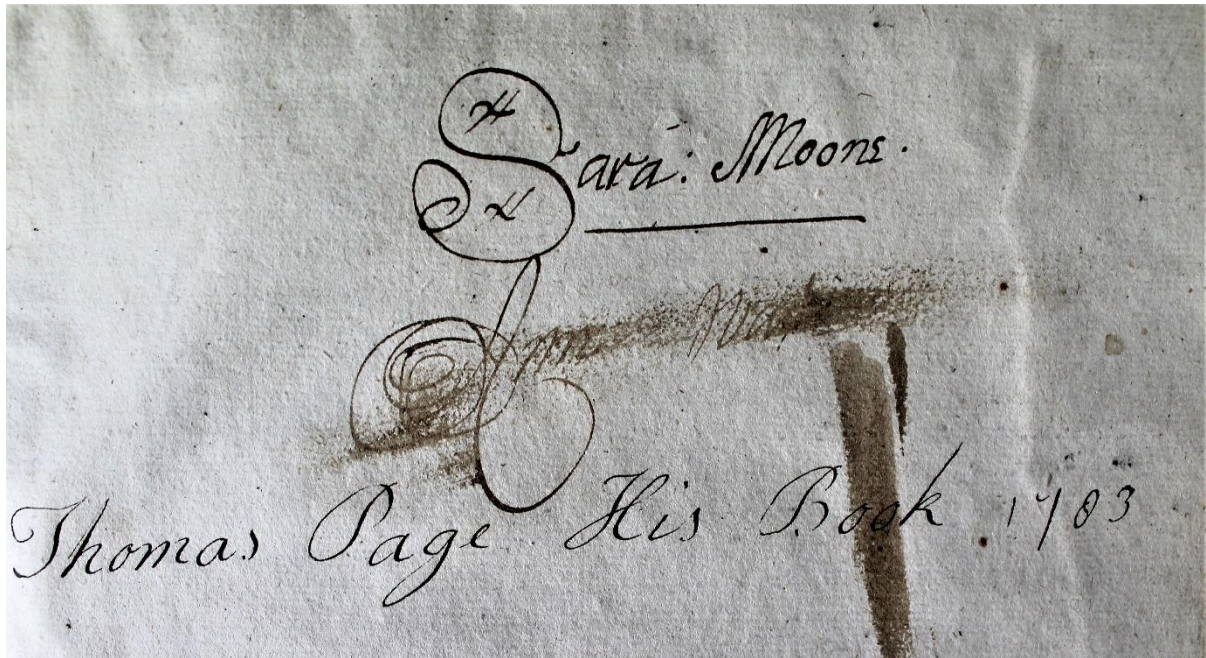 Sara: Moons.
Thomas Page His Book 1783